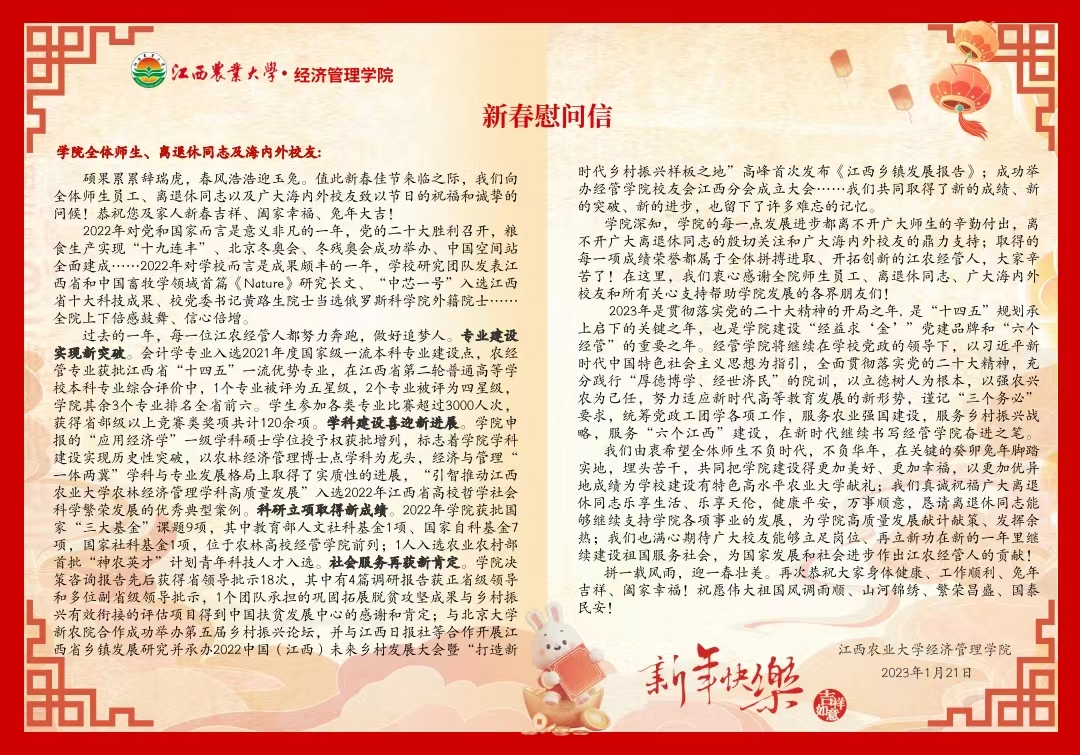 江西农业大学·经济管理学院
新春慰问信
学院全体师生、离退休同志及海内外校友:
硕果累累辞瑞虎，春风浩浩迎玉兔。值此新春佳节来临之际，我们向
全体师生员工、离退休同志以及广大海内外校友致以节日的祝福和诚挚的
问候！恭祝您及家人新春吉祥、阖家幸福、兔年大吉！
2022年对党和国家而言是意义非凡的一年，党的二十大胜利召开，粮
食生产实现“十九连丰”、北京冬奥会、冬残奥会成功举办、中国空间站
全面建成……2022年对学校而言是成果颇丰的一年，学校研究团队发表江
西省和中国畜牧学领域首篇《Nature》研究长文、“中芯一号”入选江西
省十大科技成果、校党委书记黄路生院士当选俄罗斯科学院外籍院士……
全院上下倍感鼓舞、信心倍增。
过去的一年，每一位江农经管人都努力奔跑，做好追梦人。专业建设
实现新突破。会计学专业入选2021年度国家级一流本科专业建设点，农经
管专业获批江西省“十四五”一流优势专业，在江西省第二轮普通高等学
校本科专业综合评价中，1个专业被评为五星级，2个专业被评为四星级，
学院其余3个专业排名全省前六。学生参加各类专业比赛超过3000人次，
获得省部级以上竞赛类奖项共计120余项。学科建设喜迎新进展。学院申
报的“应用经济学”一级学科硕士学位授予权获批增列，标志着学院学科
建设实现历史性突破，以农林经济管理博士点学科为龙头，经济与管理“
一体两冀”学科与专业发展格局上取得了实质性的进展，“引智推动江西
农业大学农林经济管理学科高质量发展”入选2022年江西省高校哲学社会
科学繁荣发展的优秀典型案例。科研立项取得新成绩。2022年学院获批国
家“三大基金”课题9项，其中教育部人文社科基金1项、国家自科基金7
项，国家社科基金1项，位于农林高校经管学院前列；1人入选农业农村部
首批“神农英才”计划青年科技人才入选。社会服务再获新肯定。学院决
策咨询报告先后获得省领导批示18次，其中有4篇调研报告获正省级领导
和多位副省级领导批示，1个团队承担的巩固拓展脱贫攻坚成果与乡村振
兴有效衔接的评估项目得到中国扶贫发展中心的感谢和肯定；与北京大学
新农院合作成功举办第五届乡村振兴论坛，并与江西日报社等合作开展江
西省乡镇发展研究并承办2022中国（江西）未来乡村发展大会暨“打造新
时代乡村振兴样板之地”高峰首次发布《江西乡镇发展报告》；成功举
办经管学院校友会江西分会成立大会……我们共同取得了新的成绩、新
的突破、新的进步，也留下了许多难忘的记忆。
学院深知，学院的每一点发展进步都离不开广大师生的辛勤付出，离
不开广大离退休同志的殷切关注和广大海内外校友的鼎力支持；取得的
每一项成绩荣誉都属于全体拼搏进取、开拓创新的江农经管人，大家辛
苦了！在这里，我们衷心感谢全院师生员工、离退休同志、广大海内外
校友和所有关心支持帮助学院发展的各界朋友们！
2023年是贯彻落实党的二十大精神的开局之年，是“十四五”规划承
上启下的关键之年，也是学院建设“经益求‘金’”党建品牌和“六个
经管”的重要之年。经管学院将继续在学校党政的领导下，以习近平新
时代中国特色社会主义思想为指引，全面贯彻落实党的二十大精神，充
分践行“厚德博学、经世济民”的院训，以立德树人为根本，以强农兴
农为己任，努力适应新时代高等教育发展的新形势，谨记“三个务必”
要求，统筹党政工团学各项工作，服务农业强国建设，服务乡村振兴战
略，服务“六个江西”建设，在新时代继续书写经管学院奋进之笔。
我们由衷希望全体师生不负时代，不负华年，在关键的癸卯兔年脚踏
实地，埋头苦干，共同把学院建设得更加美好、更加幸福，以更加优异
地成绩为学校建设有特色高水平农业大学献礼；我们真诚祝福广大离
退休同志乐享生活、乐享天伦，健康平安，万事顺意，恳请离退休同志能
够继续支持学院各项事业的发展，为学院高质量发展献计献策、发挥余
热；我们也满心期待广大校友能够立足岗位、再立新功在新的一年里继
续建设祖国服务社会，为国家发展和社会进步作出江农经管人的贡献！
拼一载风雨，迎一春壮美。再次恭祝大家身体健康、工作顺利、兔年
吉祥、阖家幸福！祝愿伟大祖国风调雨顺、山河锦绣、繁荣昌盛、国泰
民安！
江西农业大学经济管理学院
2023年1月21日
新年快樂
吉祥
如意